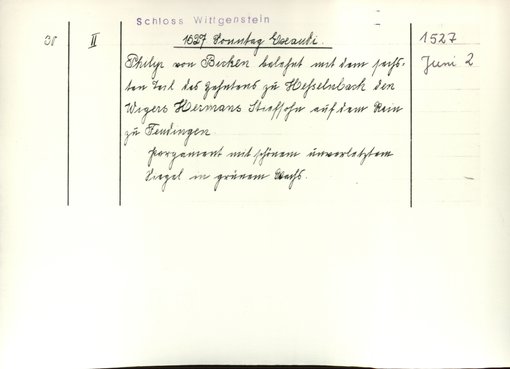 Schloss Wittgenstein
II
1527 Sonntag Exaudi.
1527
Juni 2
Philips von Bicken belehnt mit dem sechs-
ten Teil des Zehntens zu Hesselnbach den
Wigers Hermans Stiefsohn auf dem Rein
zu Feudingen
Pergament mit schönem unverletztem
Siegel in grünem Wachs.